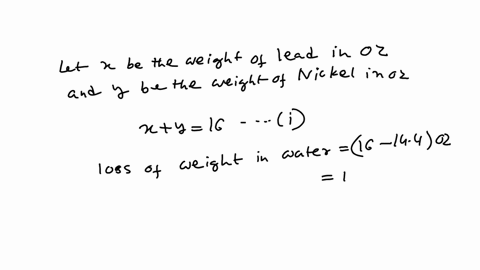 Let x be the weight of lead in oz
and y be the weight of Nickel in oz
x+y=16 - --- (i)
loss of weight in water = (16-14.4) oz
= 1